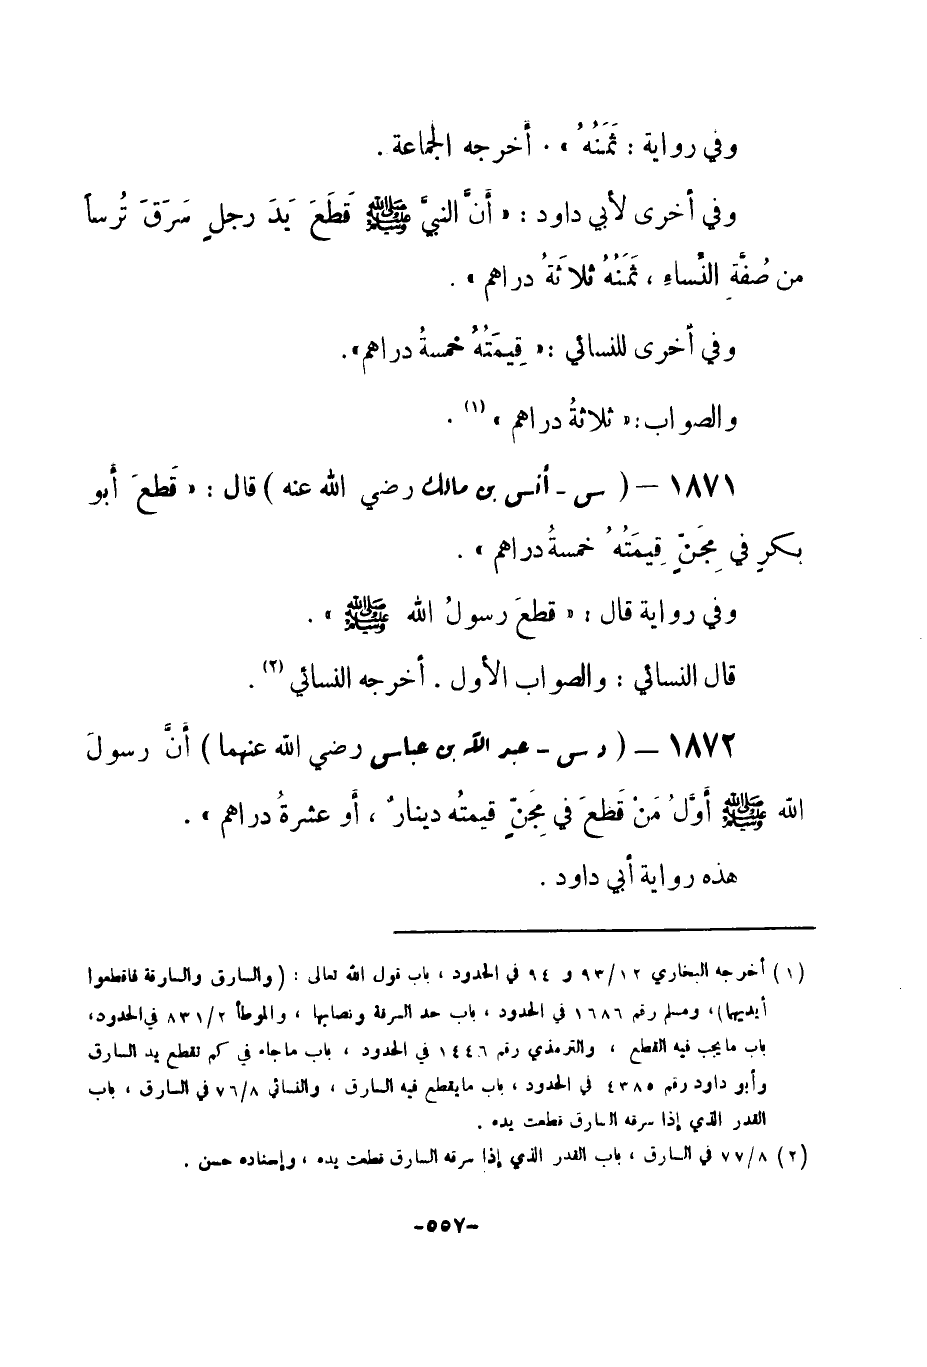 وفي رواية : ثَمَنُهُ » . أخرجه الجماعة .
وفي أخرى لأبي داود : « أَنَّ النبيَّ ﷺ قَطَعَ يَدَ رجلٍ سَرَقَ تُرساً
من صُفَّةِ النِّساءِ ، ثَمَنُهُ ثلاثَةُ دراهم » .
وفي أخرى للنسائي : « قِيمَتُهُ خمسةُ دراهم » .
والصواب : « ثلاثةُ دراهم » (١) .
١٨٧١ – ( س - أنس بن مالك رضي الله عنه ) قال : « قَطعَ أبو
بكرٍ في مِجَنٍّ قِيمَتُهُ خمسةُ دراهم » .
وفي رواية قال : « قطعَ رسولُ الله ﷺ » .
قال النسائي : والصواب الأول . أخرجه النسائي (٢) .
١٨٧٢ – ( د س - عبد الله بن عباس رضي الله عنهما ) أَنَّ رسولَ
الله ﷺ أَوَّلُ مَنْ قَطعَ في مِجَنٍّ قيمتُه دينارٌ ، أو عشرةُ دراهم » .
هذه رواية أبي داود .
(١) أخرجه البخاري ٩٣/١٢ و ٩٤ في الحدود ، باب قول الله تعالى : ( والسارق والسارقة فاقطعوا
أيديهما ) ، ومسلم رقم ١٦٨٦ في الحدود ، باب حد السرقة ونصابها ، والموطأ ٨٣١/٢ في الحدود ،
باب ما يجب فيه القطع ، والترمذي رقم ١٤٤٦ في الحدود ، باب ما جاء في كم تقطع يد السارق
وأبو داود رقم ٤٣٨٥ في الحدود ، باب ما يقطع فيه السارق ، والنسائي ٧٦/٨ في السارق ، باب
القدر الذي إذا سرقه السارق قطعت يده .
(٢) ٧٧/٨ في السارق ، باب القدر الذي إذا سرقه السارق قطعت يده ، وإسناده حسن .
-٥٥٧-